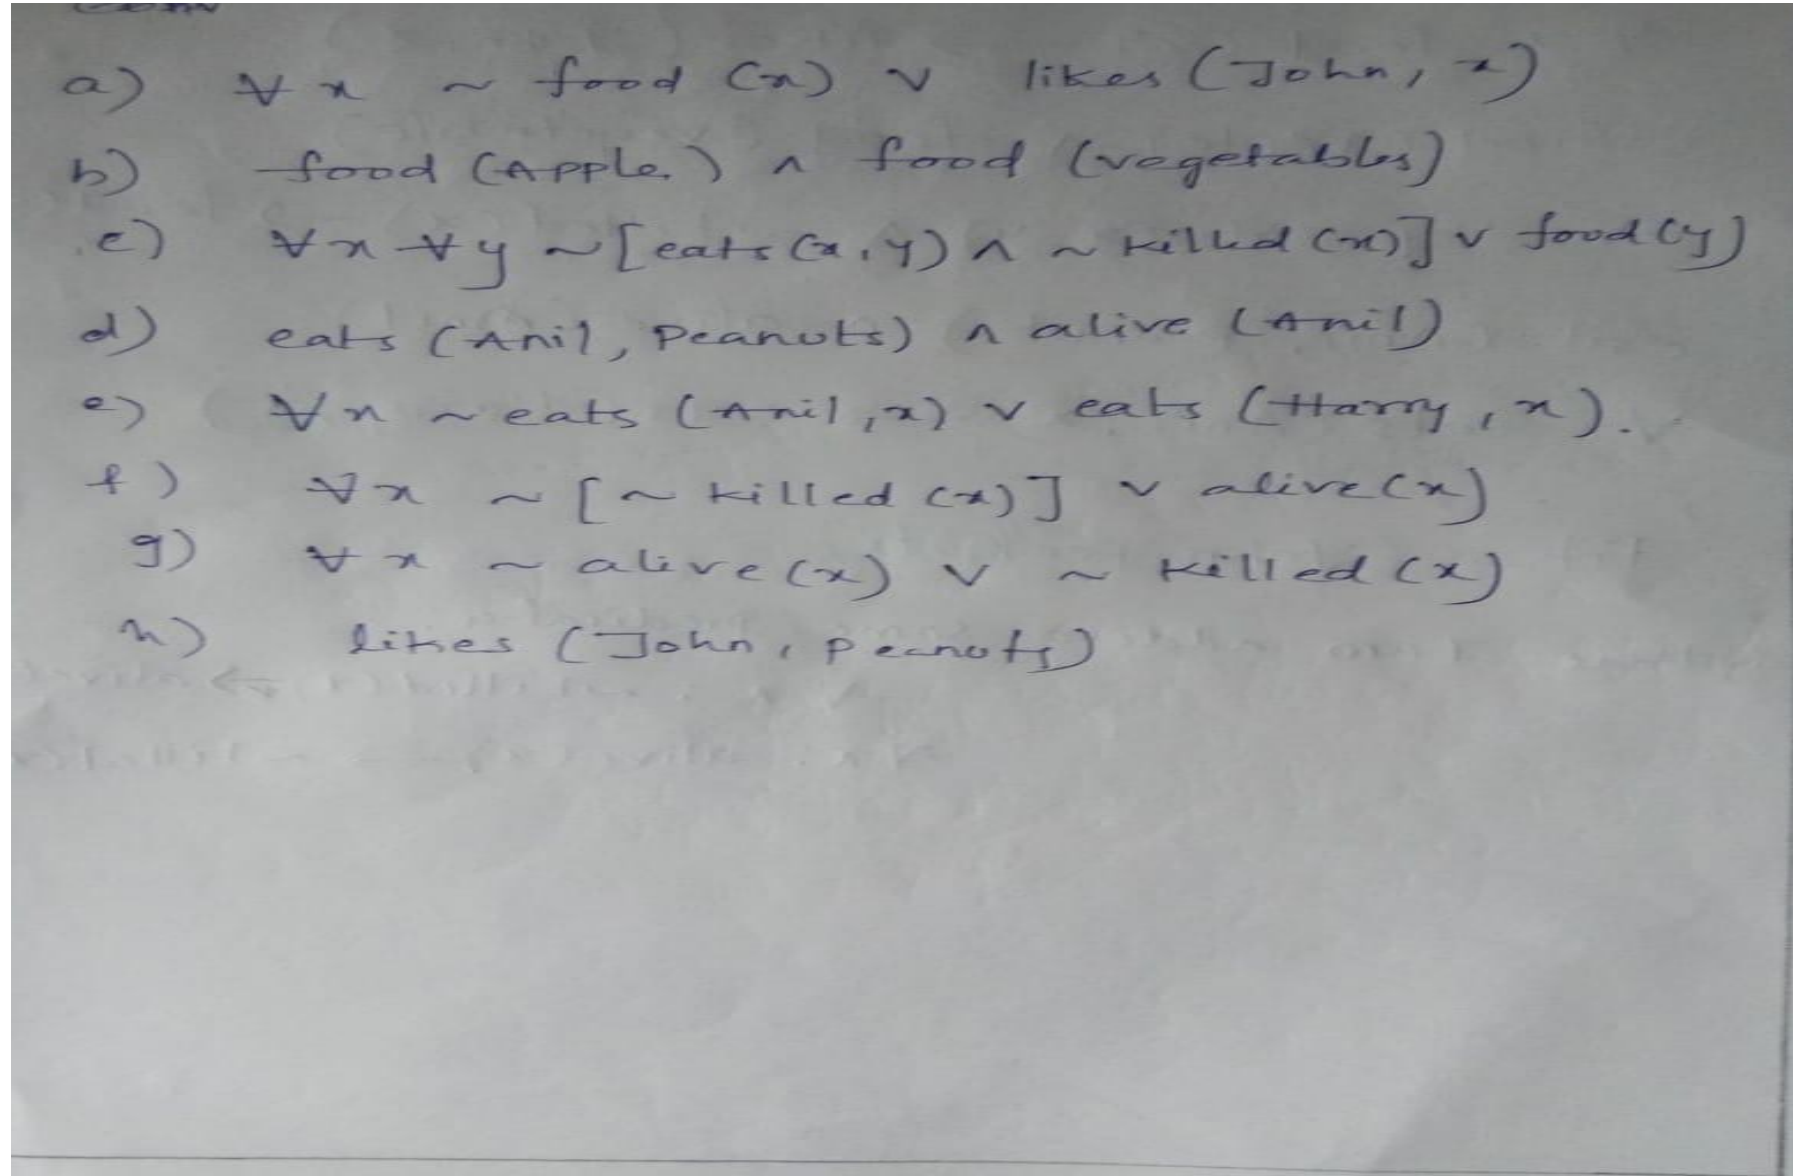 a) ∀x ~ food (x) v likes (John, x)
b) food (Apple) ∧ food (vegetables)
c) ∀x ∀y ~ [eats (x, y) ∧ ~ killed (x)] v food (y)
d) eats (Anil, Peanuts) ∧ alive (Anil)
e) ∀x ~ eats (Anil, x) v eats (Harry, x).
f) ∀x ~ [~ killed (x)] v alive (x)
g) ∀x ~ alive (x) v ~ killed (x)
h) likes (John, peanuts)